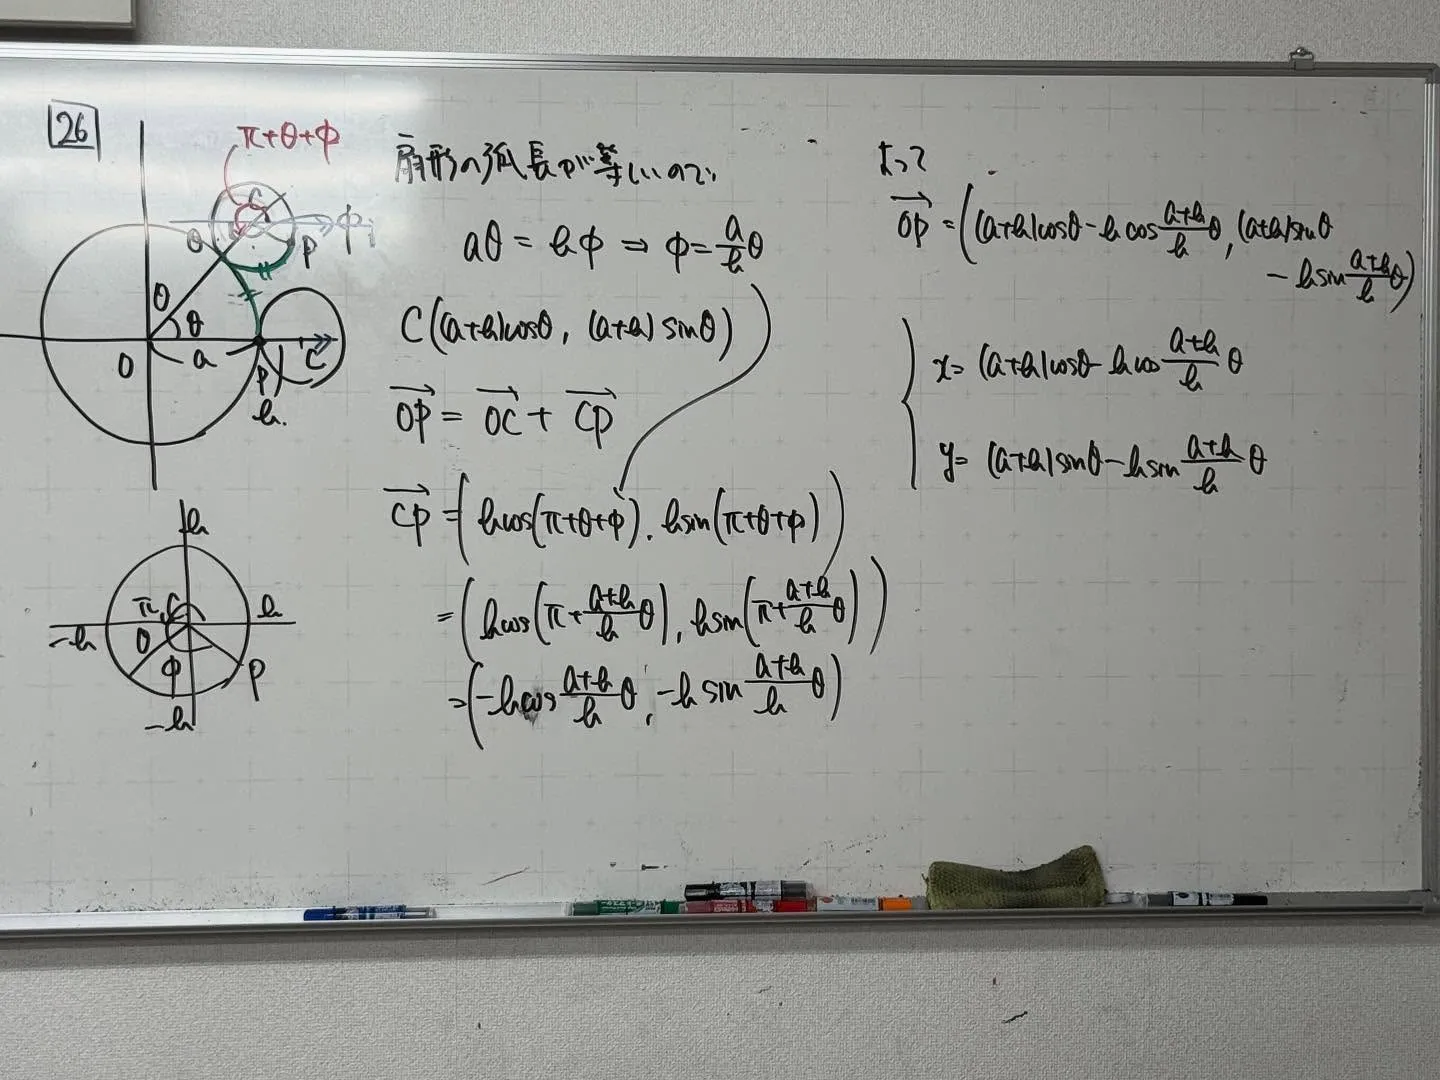 26
π+θ+φ
C
φ
θ
P
θ
θ
O
a
C
P
b.
b
π
C
b
-b
θ
φ
P
-b
扇形の弧長が等しいので,
aθ = bφ ⇒ φ = a/b θ
C((a+b)cosθ, (a+b)sinθ)
OP = OC + CP
CP = (bcos(π+θ+φ), bsin(π+θ+φ))
= (bcos(π+(a+b)/b θ), bsin(π+(a+b)/b θ))
= (-bcos (a+b)/b θ, -b sin (a+b)/b θ)
よって
OP = ((a+b)cosθ - b cos (a+b)/b θ, (a+b)sinθ
- bsin (a+b)/b θ)
x = (a+b)cosθ - bcos (a+b)/b θ
y = (a+b)sinθ - bsin (a+b)/b θ